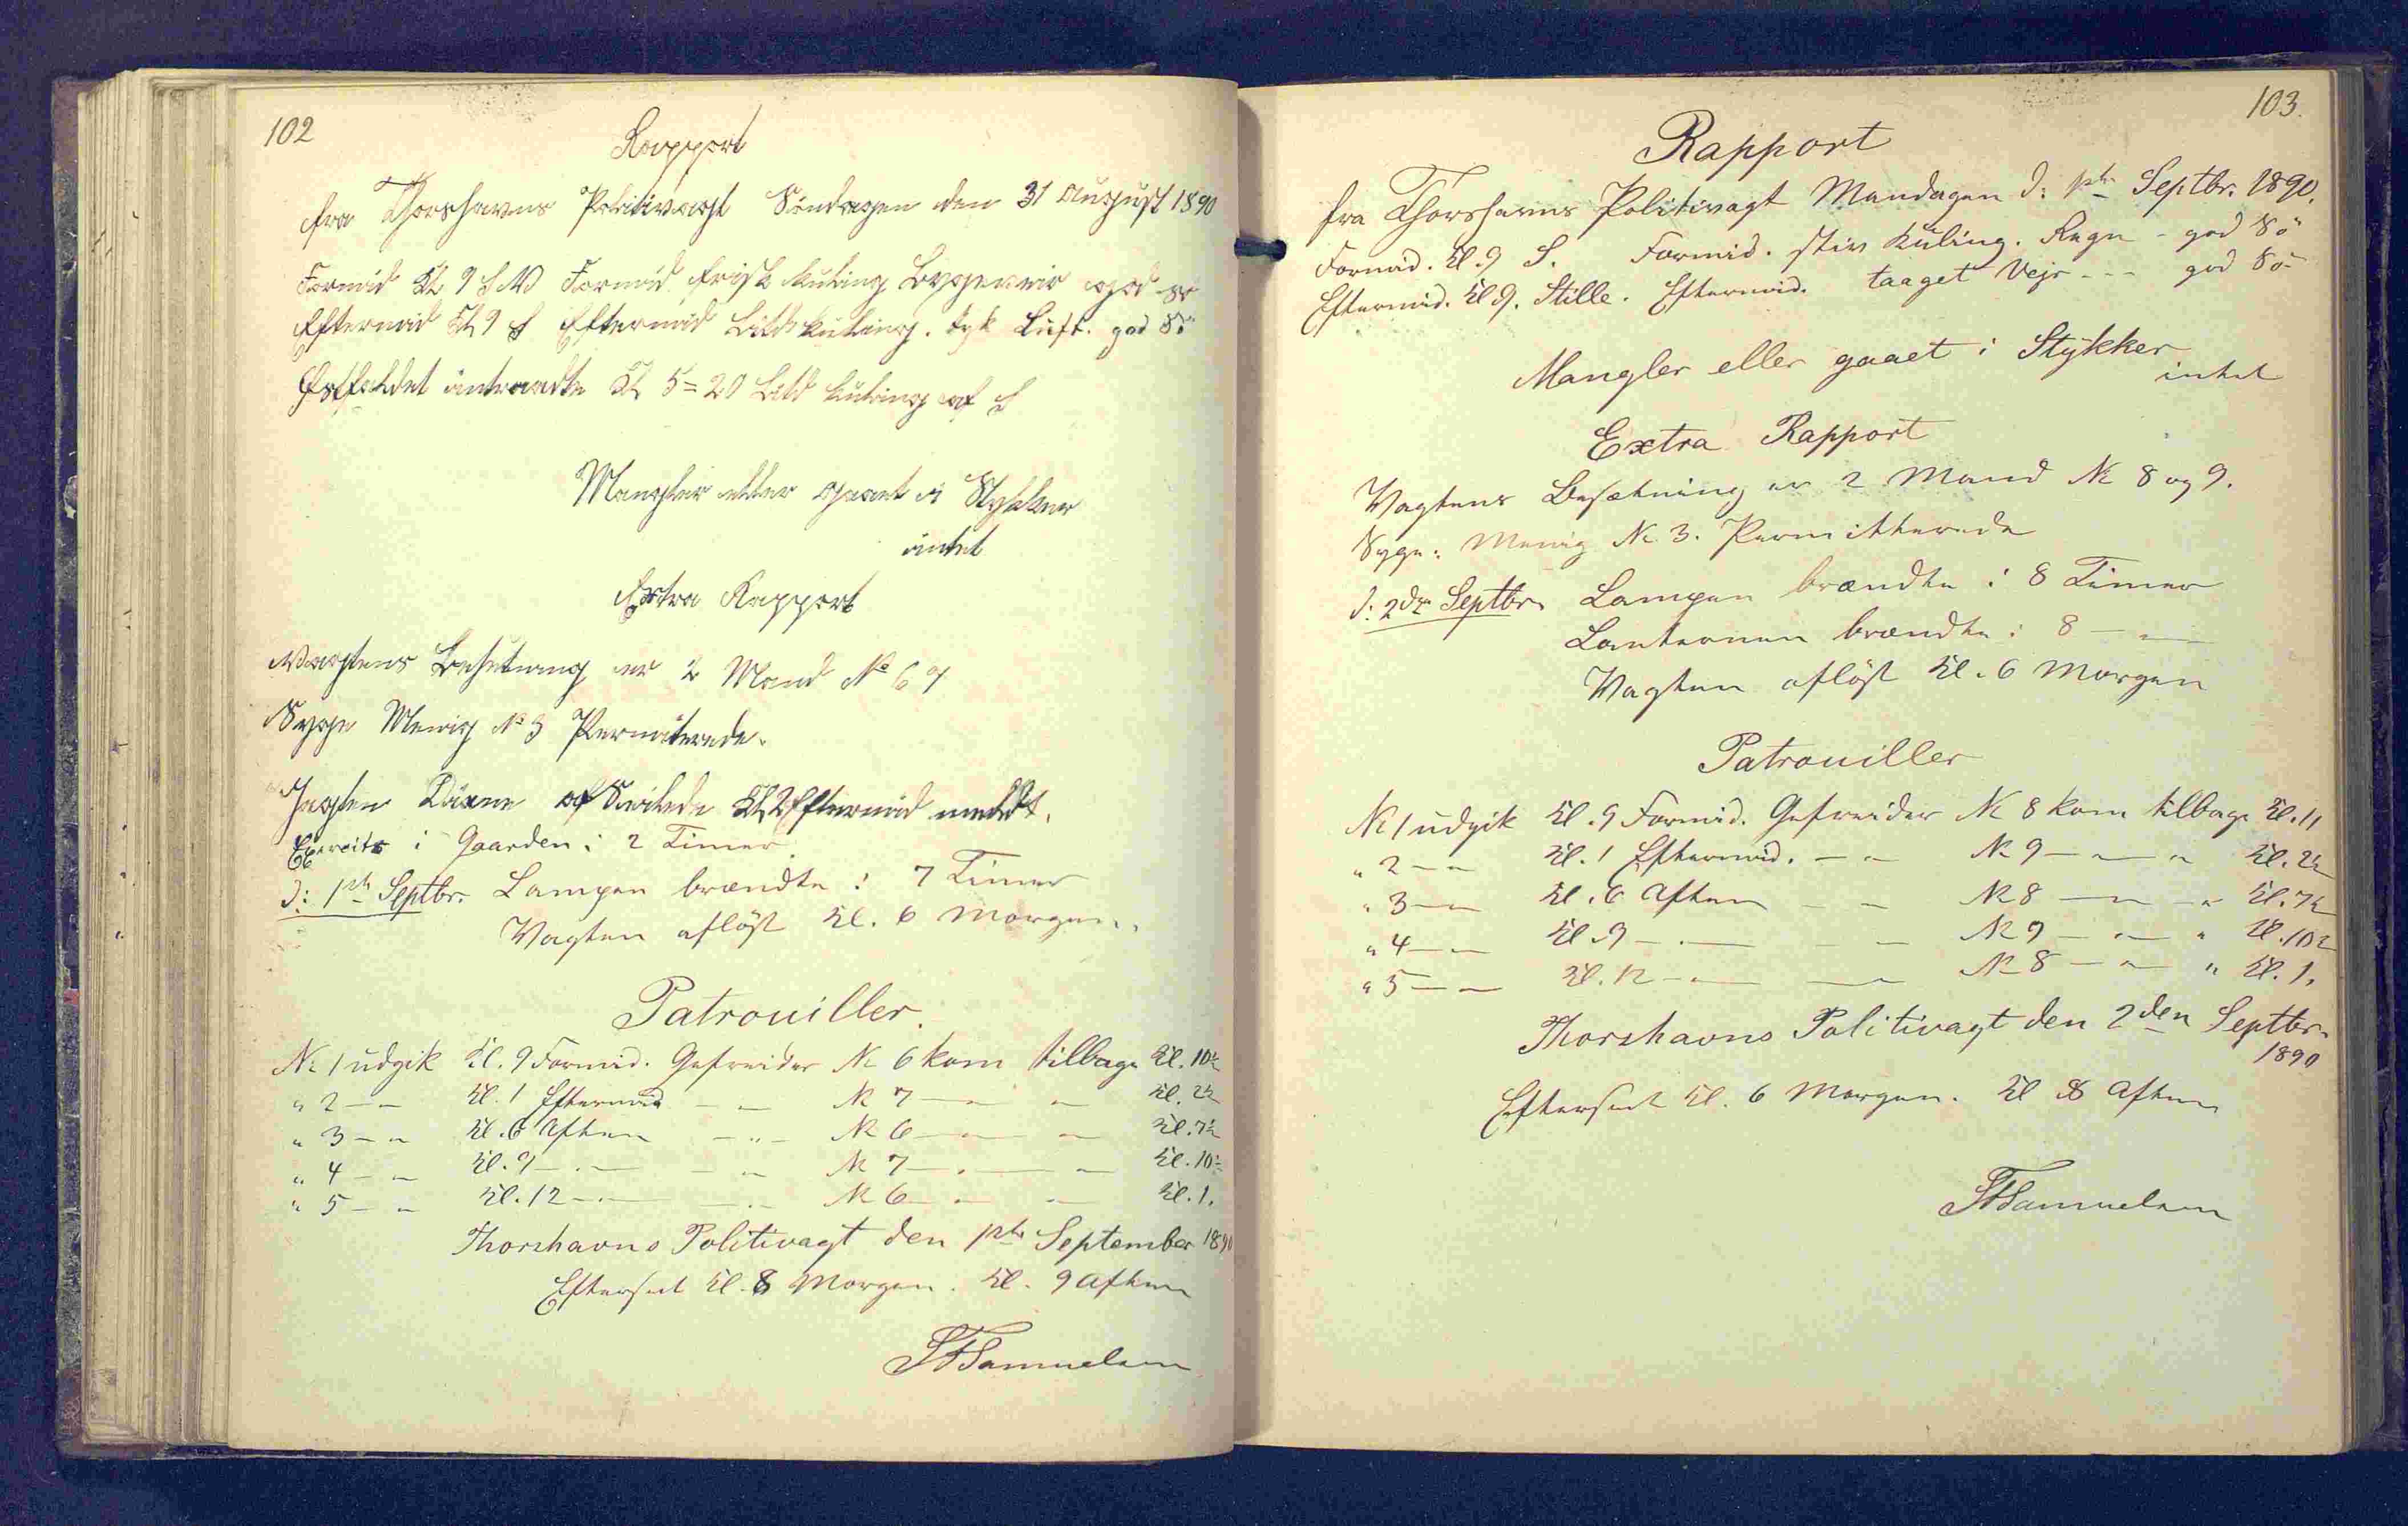 102
Rapport
fra Thorshavns Politivagt Søndagen den 31 August 1890
Formid Kl 9 S.V Formid frisk kuling Bygeveir god Sø
Eftermid Kl 9 S Eftermid Lild kuling. tyk Luft. god Sö
Østfaldet intraadte Kl 5=20 Lild kuling af S
Mangler eller gaaet i Stykker
intet
Extra Rapport
Vagtens Besetning er 2 Mand No 6 7
Syge Menig No 3 Permiterede.
Jagten Diane af Seilede Kl 2 Eftermid
Exersits i Gaarden i 2 Timer
d: 1ste Septbr. Lampen brændte i 7 Timer
Vagten aflöst Kl. 6 Morgen.
Patrouiller.
No 1 udgik Kl. 9 Formid. Gefreider No 6 kom tilbage Kl. 10½
" 2 — " Kl. 1 Eftermid — " — No 7 — " — " Kl. 2½
" 3 — " Kl. 6 Aften — " — No 6 — " — " Kl. 7½
" 4 — " Kl. 9 — " — — " No 7 — " — " Kl. 10½
" 5 — " Kl. 12 — " — — " No 6 — " — " Kl. 1.
Thorshavns Politivagt den 1ste September 1890
Efterseet Kl. 8 Morgen. Kl. 9 Aften
Samuelsen
103.
Rapport
fra Thorshavns Politivagt Mandagen d: 1ste Septbr. 1890.
Formid. Kl. 9 S. Formid. stiv Kuling. Regn - god Sö
Eftermid. Kl 9. Stille. Eftermid. taaget Vejr - - - god Sö
Mangler eller gaaet i Stykker
intet
Extra Rapport
Vagtens Besætning er 2 Mand No 8 og 9.
Syge: Menig No 3. Permitterede
d: 2den Septbr. Lampen brændte i 8 Timer
Lanternen brændte i 8 — " —
Vagten aflöst Kl. 6 Morgen
Patrouiller
No 1 udgik Kl. 9 Formid. Gefreider No 8 kom tilbage Kl. 11
" 2 — " Kl. 1 Eftermid. — " No 9 — " — " Kl. 2½
" 3 — " Kl. 6 Aften — " No 8 — " — " Kl. 7½
" 4 — " Kl. 9 — " — — " No 9 — " — " Kl. 10½
" 5 — " Kl. 12 — " — — " No 8 — " — " Kl. 1.
Thorshavns Politivagt den 2den Septbr.
1890
Efterseet Kl. 6 Morgen. Kl 8 Aften
Samuelsen